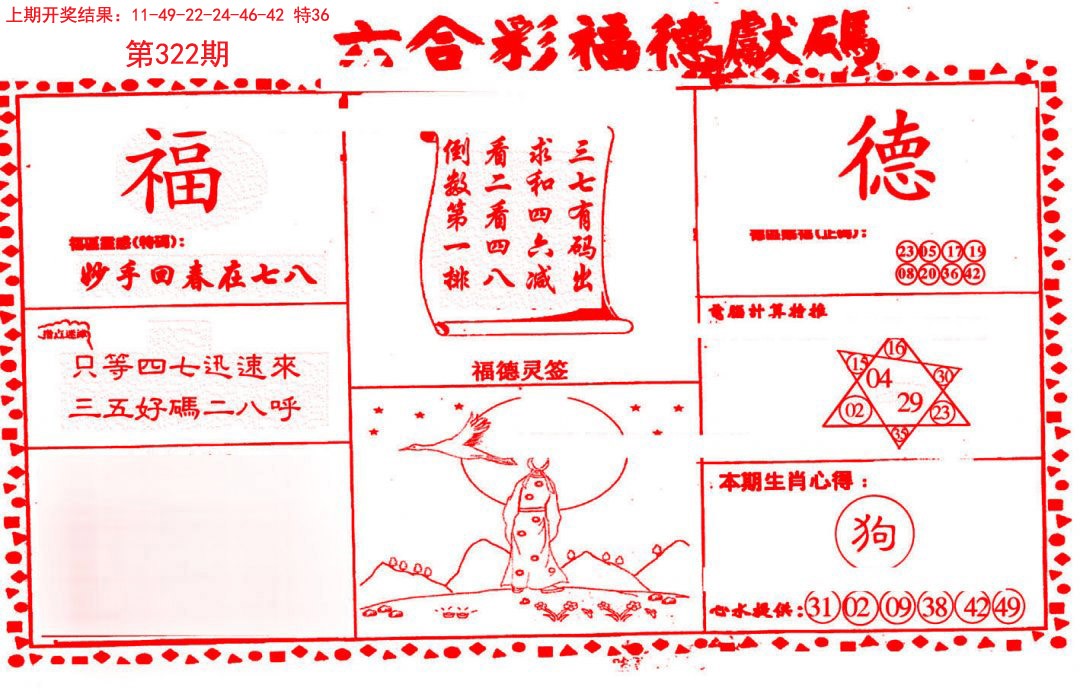 上期开奖结果：11-49-22-24-46-42 特36
第322期
六合彩福德獻碼
福
妙手回春在七八
只等四七迅速來
三五好碼二八呼
三七有码出
求和四六减
看二看四八
倒数第一排
福德灵签
德
23 05 17 19
08 20 36 42
電腦計算精推
16
15 30
04
02 29 23
35
本期生肖心得：
狗
心水提供：31 02 09 38 42 49